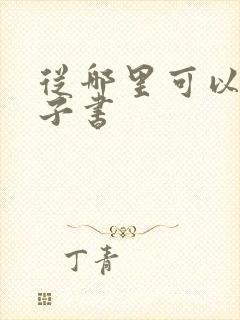 從哪里可以
子書
丁青